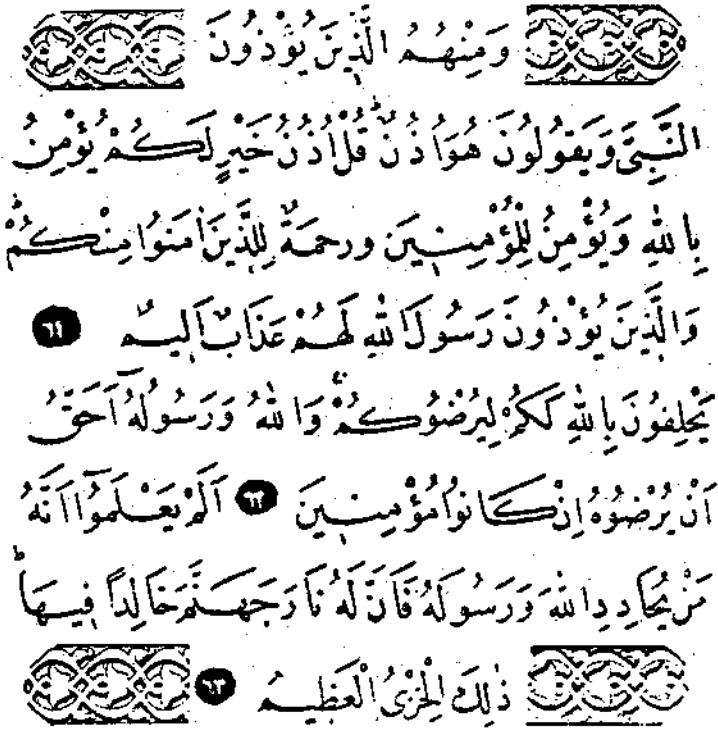 وَمِنْهُمُ الَّذِينَ يُؤْذُونَ
النَّبِىَّ وَيَقُولُونَ هُوَ اُذُنٌ قُلْ اُذُنُ خَيْرٍ لَكُمْ يُؤْمِنُ
بِاللّٰهِ وَيُؤْمِنُ لِلْمُؤْمِنِينَ وَرَحْمَةٌ لِلَّذِينَ اٰمَنُوا مِنْكُمْ
وَالَّذِينَ يُؤْذُونَ رَسُولَ اللّٰهِ لَهُمْ عَذَابٌ اَلِيمٌ ٦١
يَحْلِفُونَ بِاللّٰهِ لَكُمْ لِيُرْضُوكُمْ وَاللّٰهُ وَرَسُولُهُٓ اَحَقُّ
اَنْ يُرْضُوهُ اِنْ كَانُوا مُؤْمِنِينَ ٦٢ اَلَمْ يَعْلَمُٓوا اَنَّهُ
مَنْ يُحَادِدِ اللّٰهَ وَرَسُولَهُ فَاَنَّ لَهُ نَارَ جَهَنَّمَ خَالِدًا فِيهَا
ذٰلِكَ الْخِزْىُ الْعَظِيمُ ٦٣